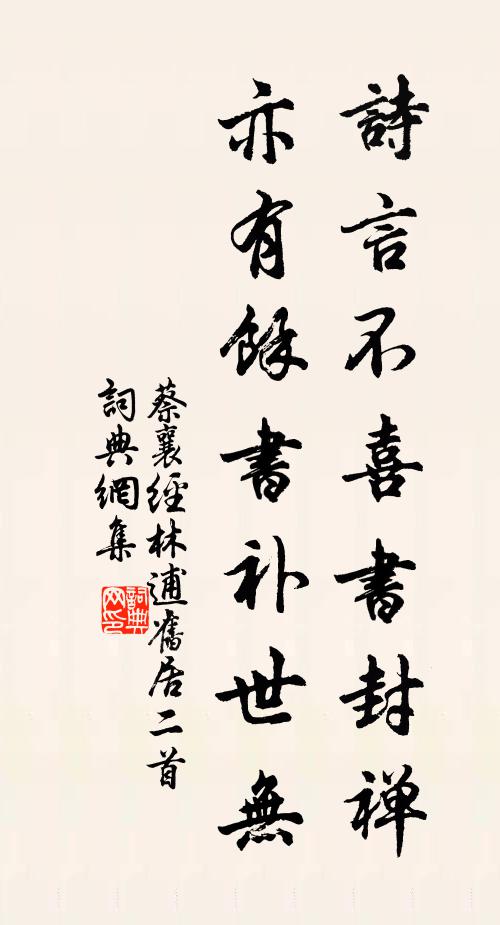 詩言不喜書封禅
亦有餘書补世無
蔡襄經林逋舊居二首
詞典網集
詞典网印